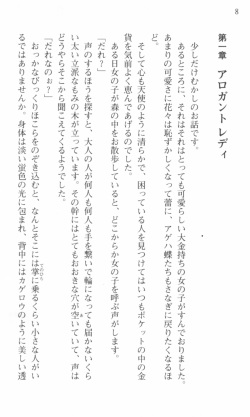 8
第一章　アロガント レディ
少しだけむかしのお話です。
あるところに、それはそれはとっても可愛らしい大金持ちの女の子がすんでおりました。
あまりの可愛さに花々は恥ずかしくなって蕾に、アゲハ蝶たちもさなぎに戻りたくなるほ
どでした。
そして心も天使のように清らかで、困っている人を見つけてはいつもポケットの中の金
貨を気前よく恵んであげるのでした。
ある日女の子が森の中をお散歩していると、どこからか女の子を呼ぶ声がします。
「だれ？」
声のするほうを探すと、大人の人が何人も何人も手を繋いで輪になっても届かないくら
い太い立派なもみの木が立っています。その幹にはとてもおおきな穴が空いていて、声は
どうやらそこから聞こえてくるようでした。
「だれなの」
おっかなびっくりほこらをのぞき込むと、なんとそこには掌に乗るくらい小さな人がい
るではありませんか。身体は淡い蛍色の光に包まれ、背中にはカゲロウのように美しい透